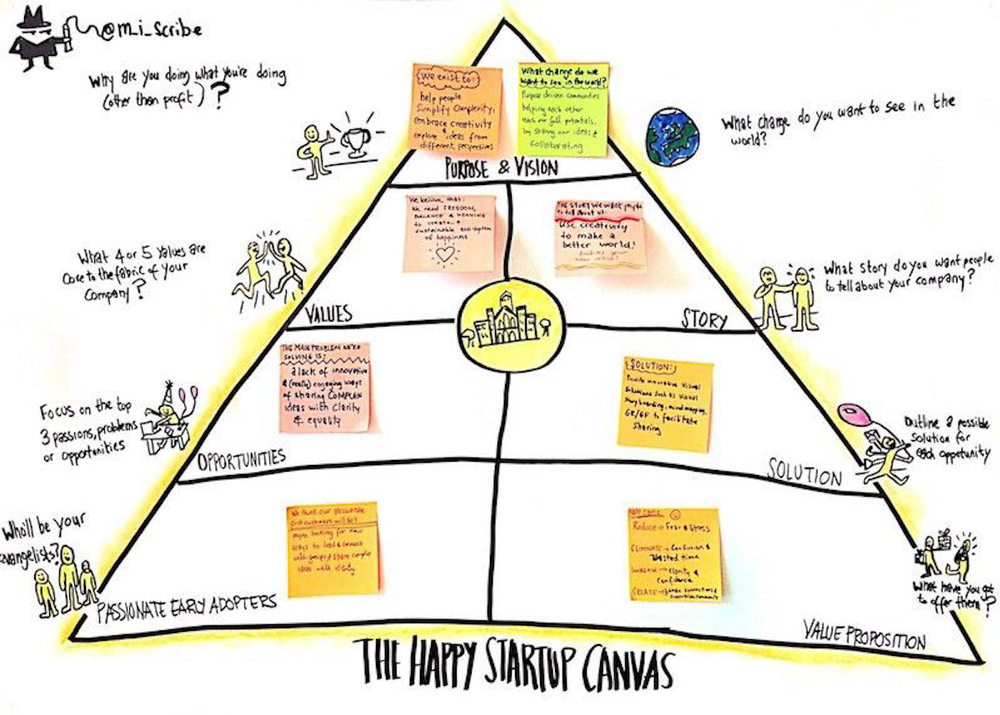 @m_i_scribe
Why are you doing what you're doing
(other than profit)?
We exist to:
help people
Simplify Complexity,
embrace creativity
explore ideas from
different perspectives
What change do we
want to see in the world?
Purpose driven communities
helping each other
full potentials,
by sharing ideas &
collaborating
PURPOSE & VISION
What change do you want to see in the
world?
What 4 or 5 values are
core to the fabric of your
Company?
We believe that:
We need FREEDOM,
BALANCE & MEANING
to create a
sustainable ecosystem
of happiness
VALUES
THE STORY WE WANT people
to tell about us:
Use creativity
to make a
better world!
STORY
What story do you want people
to tell about your company?
Focus on the top
3 passions, problems
or opportunities
THE MAIN PROBLEM WE'RE
SOLVING IS:
a lack of innovative
& (really) engaging ways
of sharing COMPLEX
ideas with clarity
& equality
OPPORTUNITIES
SOLUTION:
Provide innovative visual
Solutions such as visual
storyboarding, mind mapping,
GR/GF to facilitate
Sharing
SOLUTION
Outline a possible
Solution for
each opportunity
Who'll be your
evangelists?
We think our passionate
first customers will be:
looking for new
ways to lead & connect
with groups/share complex
ideas with clarity
PASSIONATE EARLY ADOPTERS
Reduce → Fear & Stress
ELIMINATE → Confusion &
Wasted time
INCREASE → Clarity &
Confidence
CREATE →
VALUE PROPOSITION
What have you got
to offer them?
THE HAPPY STARTUP CANVAS